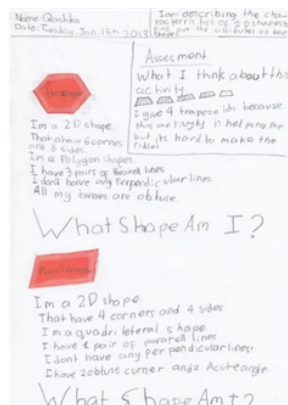 Name: Qoshko
Date: Tuesday, Jan. 16th 2018
I am describing the char
racterristics of 2D shapes to
find out the attributes of
Assesment
What I think about this
activity
I give 4 trapezoids because
this activity is helping me
but its hard to make the
riddles
Hexagon
Im a 2D shape.
That have 6 corners
and 6 sides.
Im a Polygon shapes
I have 3 pairs of Pararell lines
I dont haeve any Perpendicular lines
All my cornes are obtuse.
What Shape Am I?
Parallelogram
Im a 2D shape.
That have 4 corners and 4 sides
I m a quadrilateral shape
I have 1 pair of pararell lines
I dont have any per pendicular lines
I have 2 obtuse corner and 2 Acute angle.
What Shape Am I?